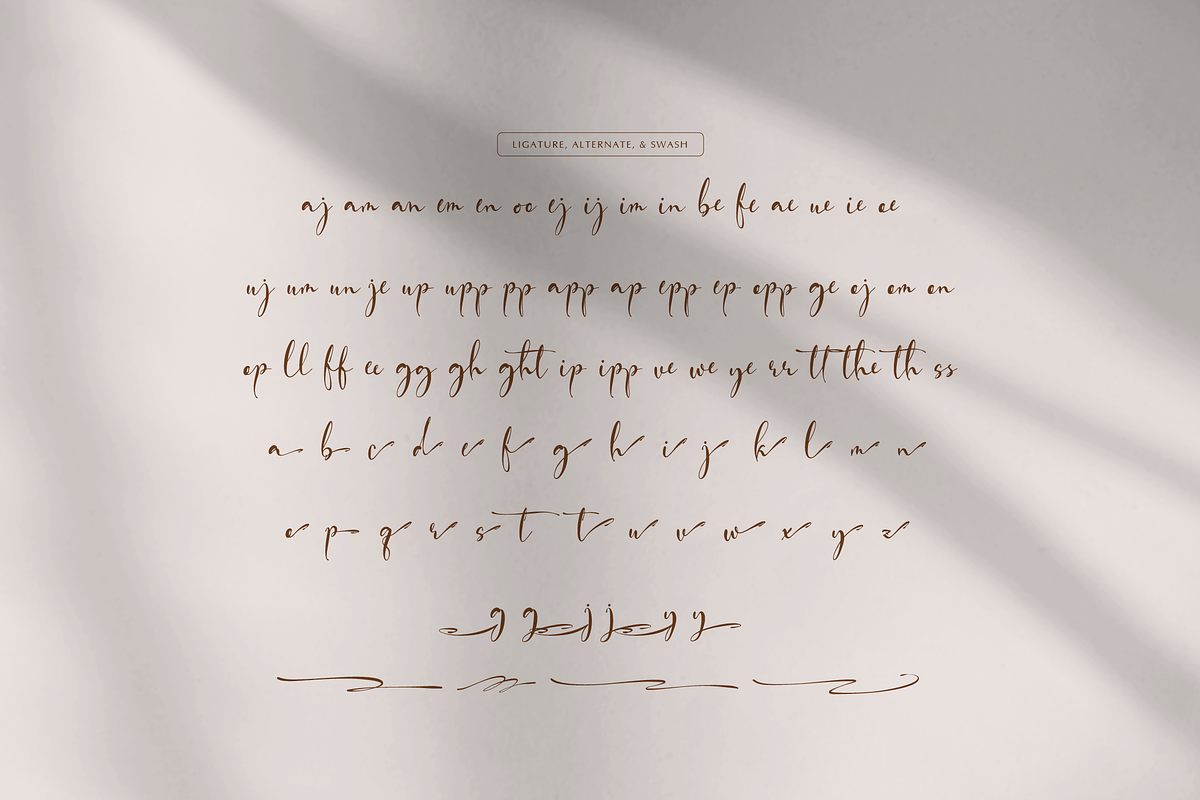 LIGATURE, ALTERNATE, & SWASH
aj am an em en oo ej ij im in be fe ae ue ie oe
uj um un je up upp pp app ap epp ep opp ge oj om on
op ll ff ee gg gh ght ip ipp ve we ye rr tt the th ss
a b c d e f g h i j k l m n
o p q r s t t u v w x y z
g g j j y y